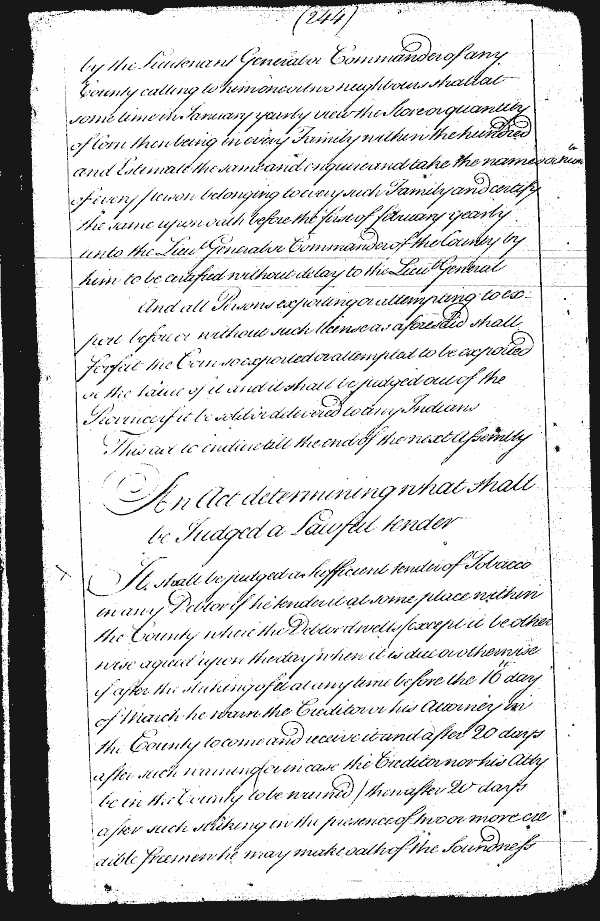 (244)
by the Lieutenant Generall or Commander of any
County calling to him one or two neighbours shall at
some time in January yearly view the Store or quantity
of Corn then being in every Family within the hundred
and Estimate the same and enquire and take the names
of every person belonging to every such Family and certify
the same upon oath before the first of february yearly
unto the Lieut Generall or Commander of the County by
him to be certified without delay to the Lieut General
And all Persons exporting or attempting to ex-
port before or without such license as aforesaid shall
forfeit the Corn so exported or attempted to be exported
or the value of it and it shall be judged out of the
Province if it be sold or delivered to any Indians
This act to endure till the end of the next Assembly
An Act determining what shall
be Judged a Lawfull tender
It shall be judged a sufficient tender of Tobacco
in any Debtor if he tender it at some place within
the County where the Debtor dwells (except it be other
wise agreed upon the day when it is due or otherwise
if after the striking of it at any time before the 16th day
of March he warn the Creditor or his Attorney in
the County to come and receive it and after 20 days
after such warning (or in case the Creditor nor his Atty
be in the County to be warned) then after 20 days
after such striking in the presence of two or more cre
dible freemen he may make oath of the Soundness